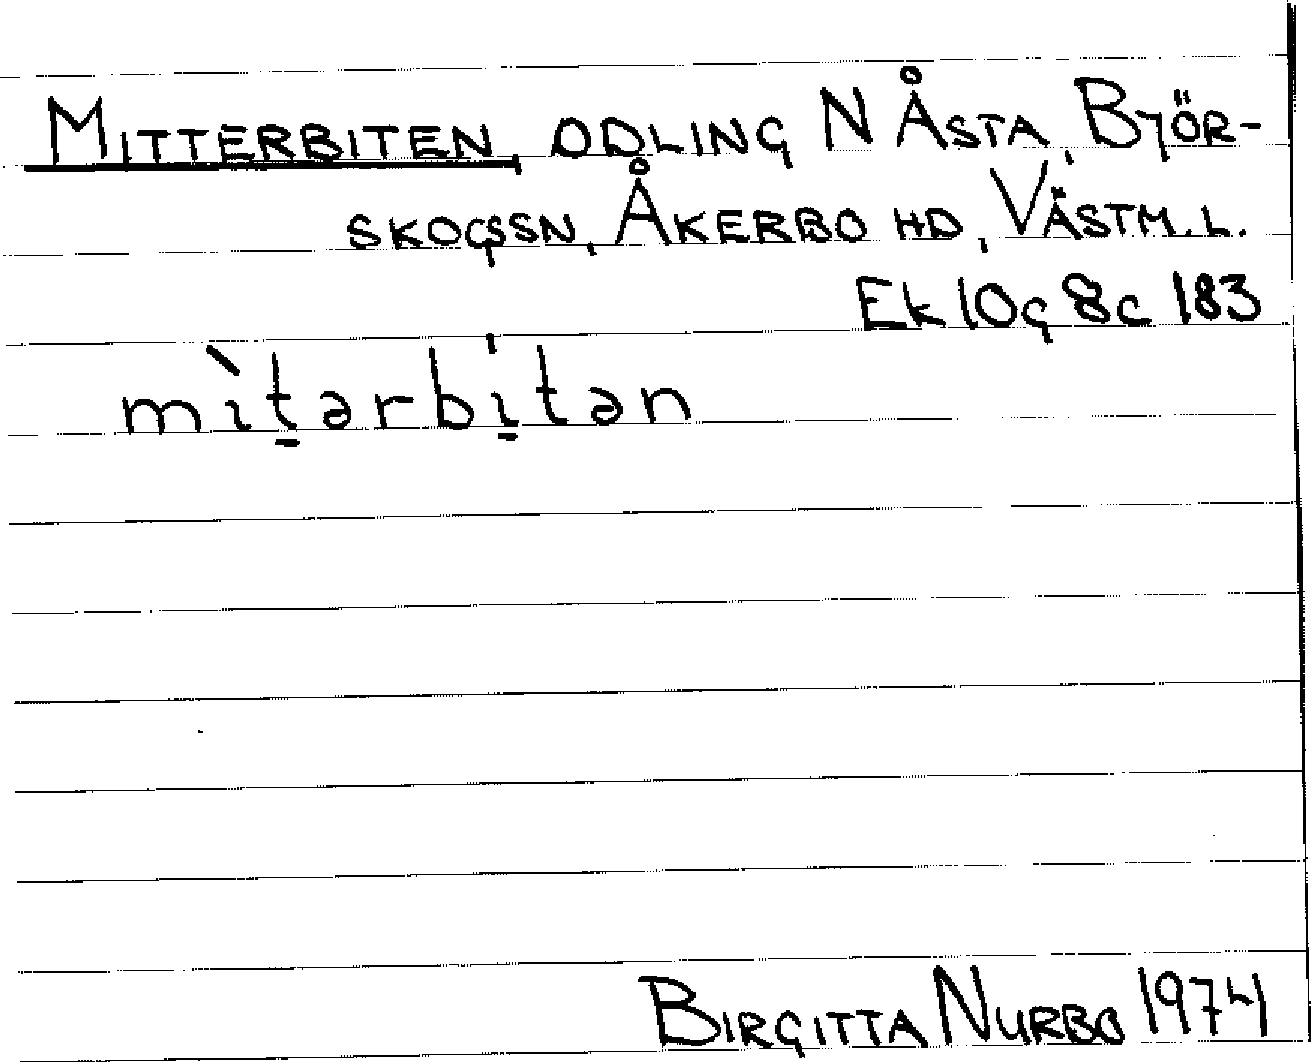 MITTERBITEN, ODLING N ÅSTA, BJÖR-
SKOGSSN, ÅKERBO HD, VÄSTM.L.
Ek 10g 8c 183
mìt̠ərbi̠tən
BIRGITTA NURBO 1974